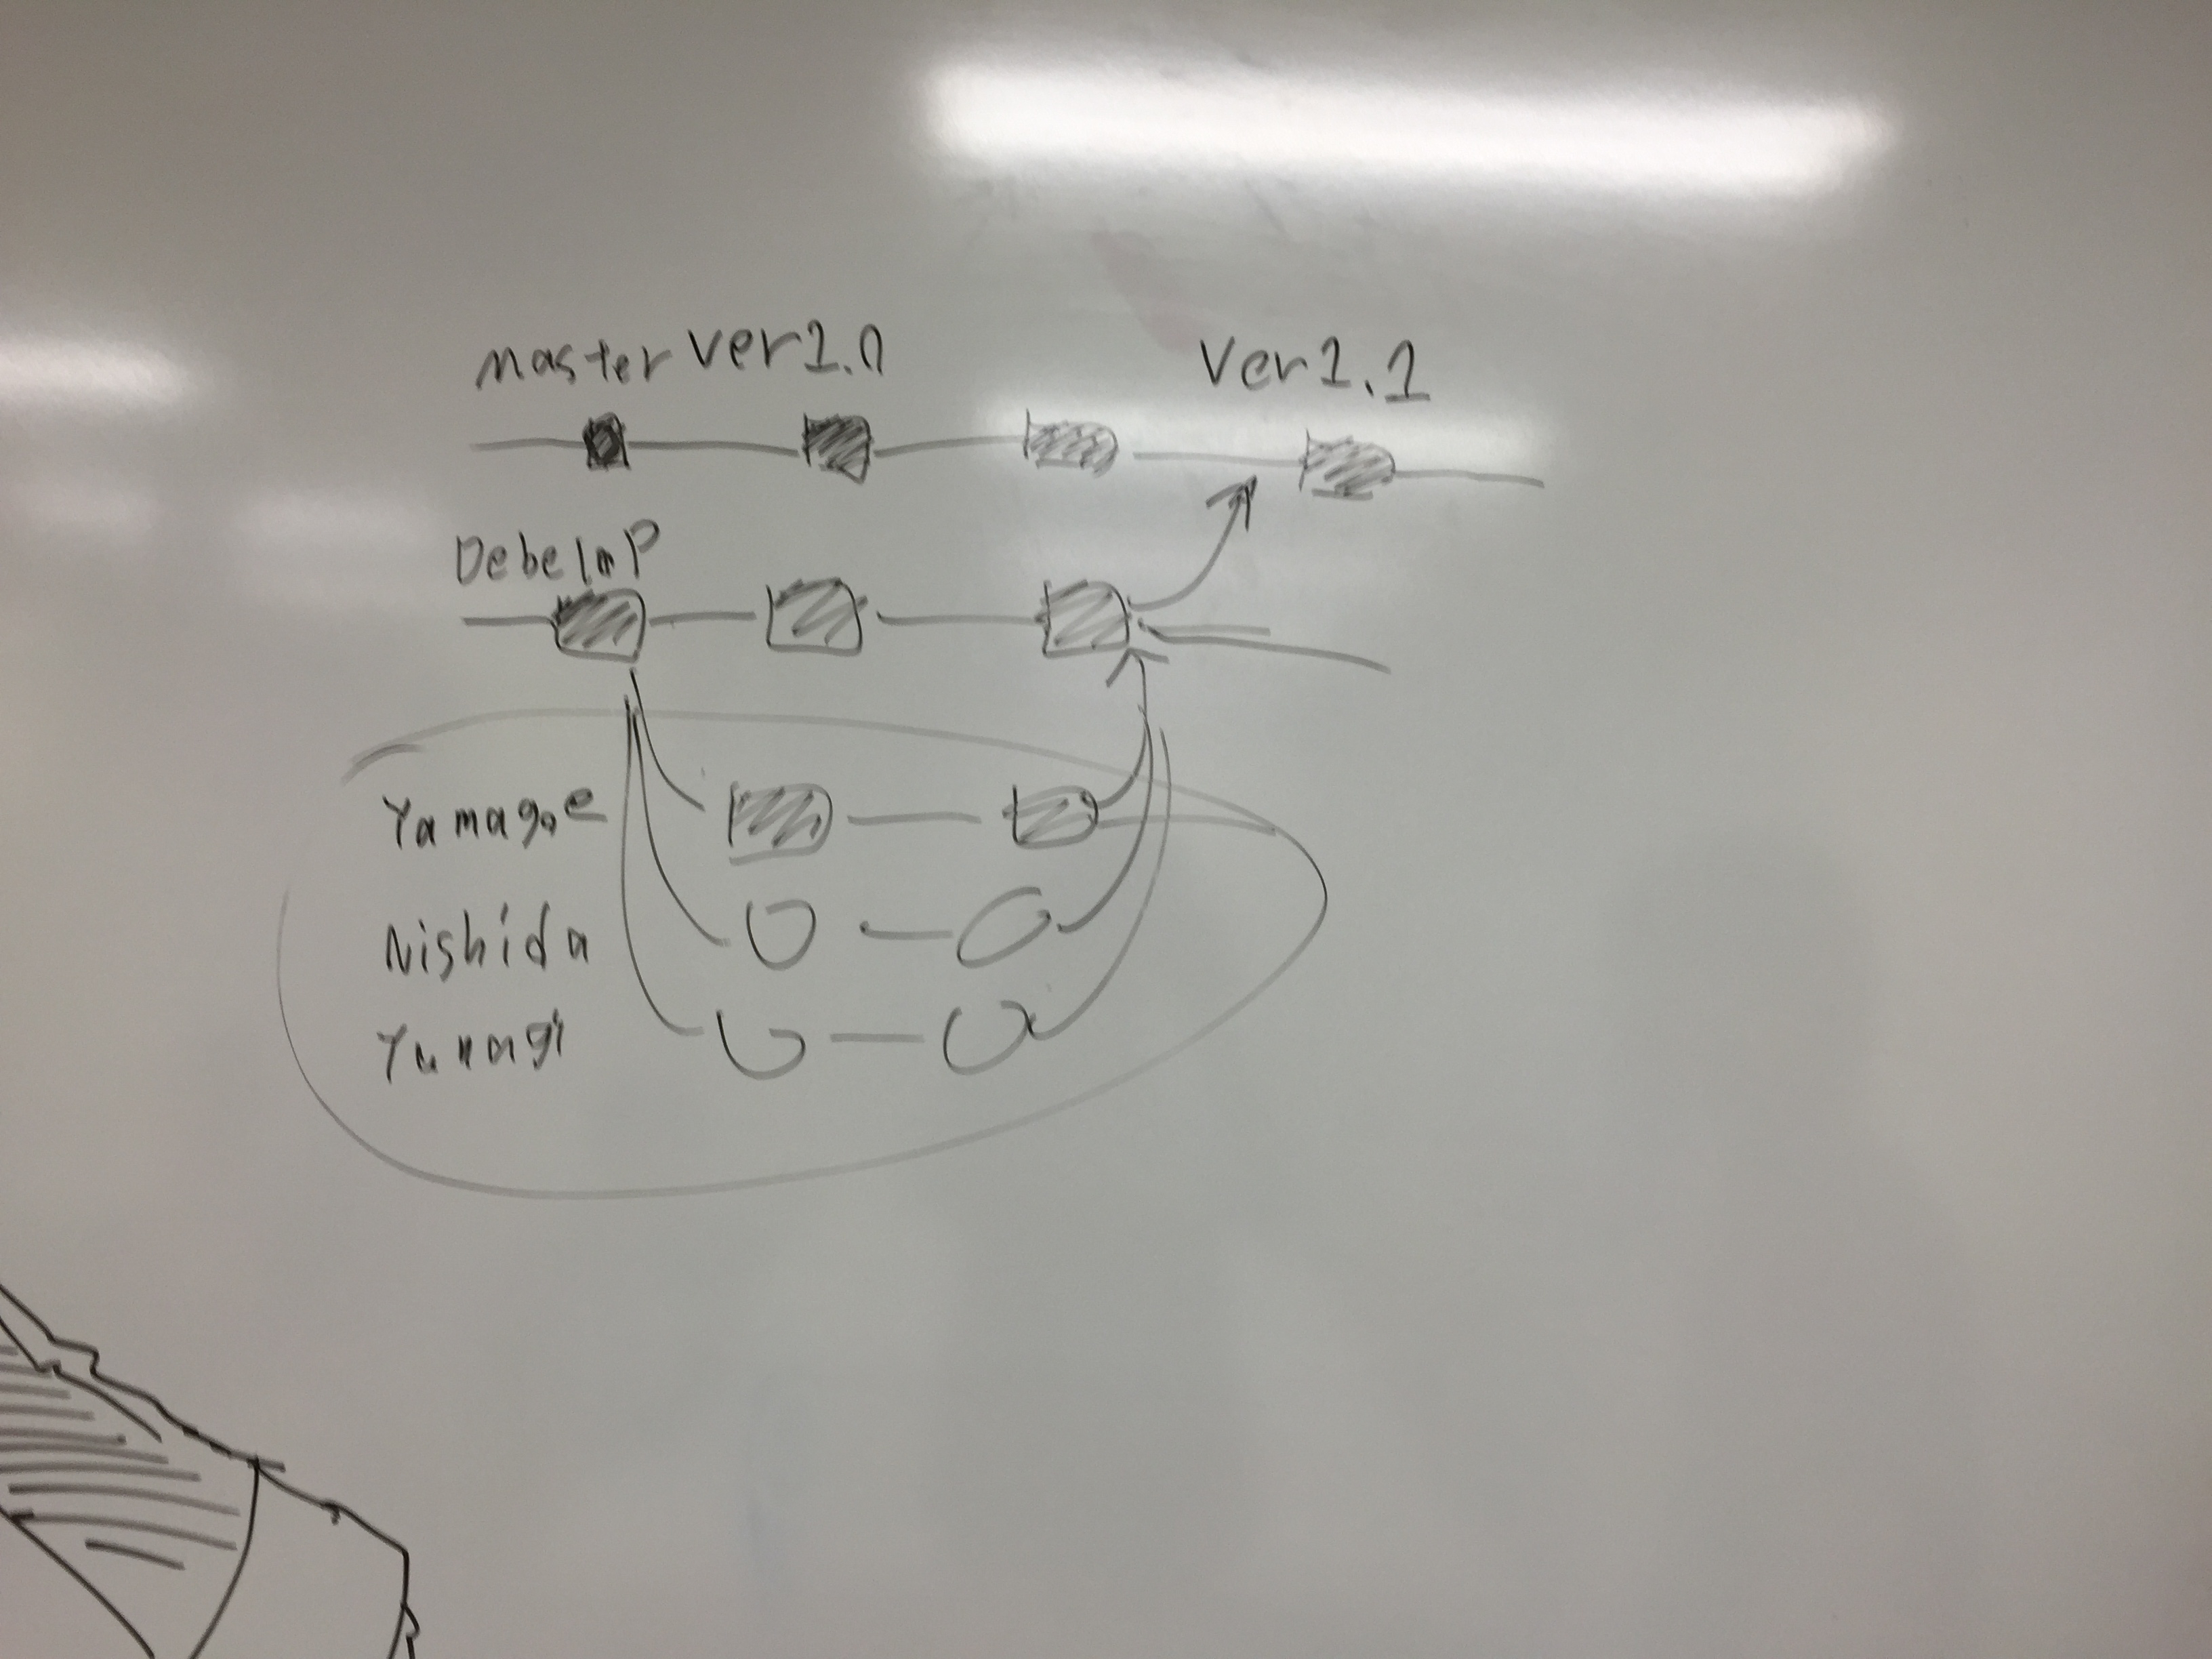 master ver1.0
Ver1.1
Debelop
Yamagoe
Nishida
Yanagi